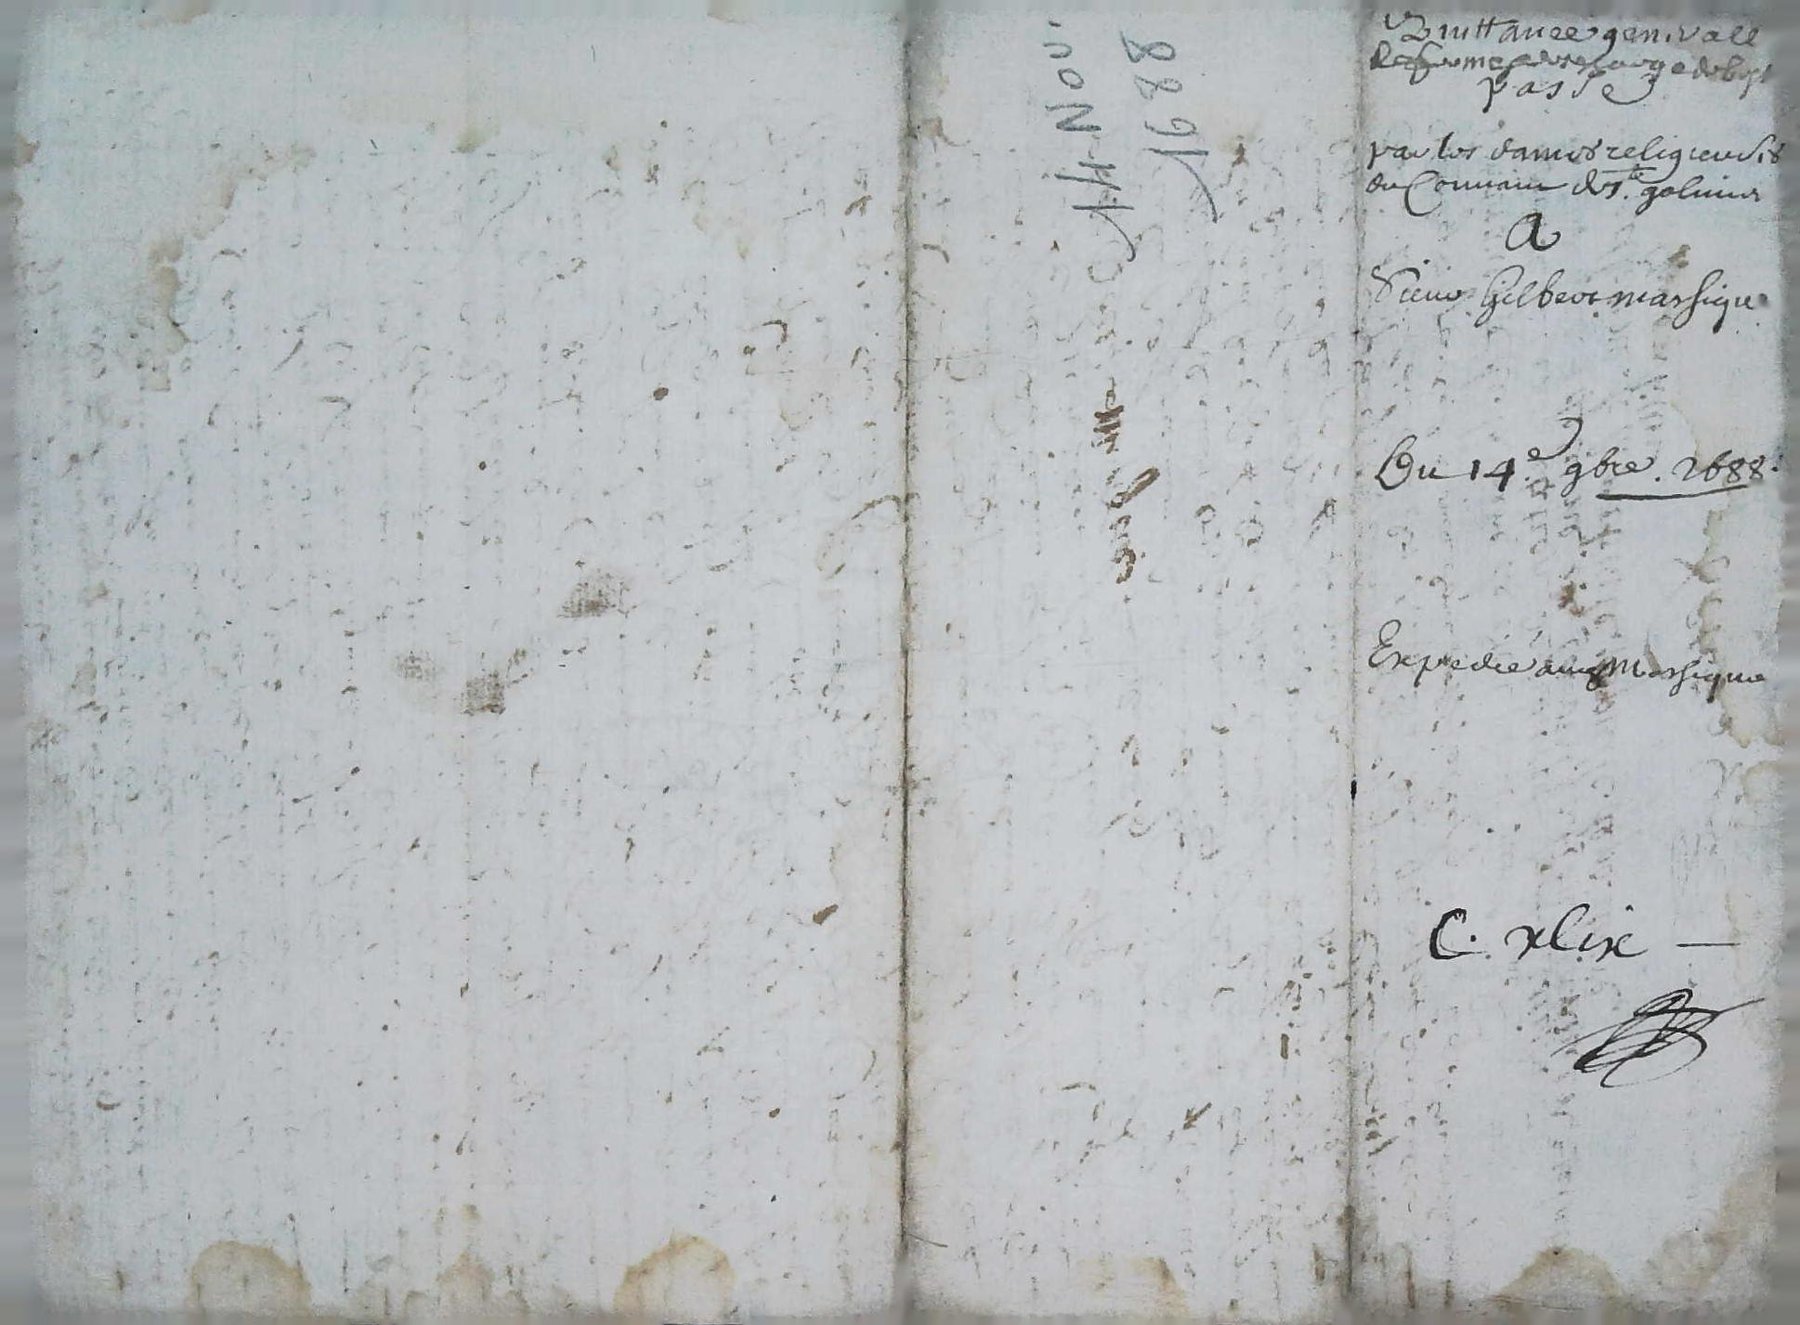 14 Nov.
1688
Quittance generalle
passé
par les dames religieuses
du Convain de St. galmier
A
Sieur Gilbert massique
Du 14e. 9bre. 1688.
Expedié aud massique
C. xlix